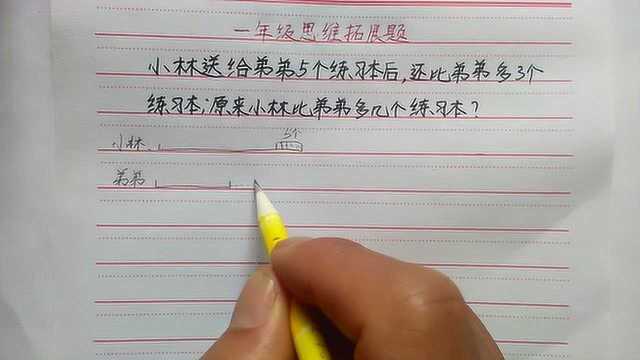 一年级思维拓展题
小林送给弟弟5个练习本后,还比弟弟多3个
练习本;原来小林比弟弟多几个练习本?
5个
小林
弟弟